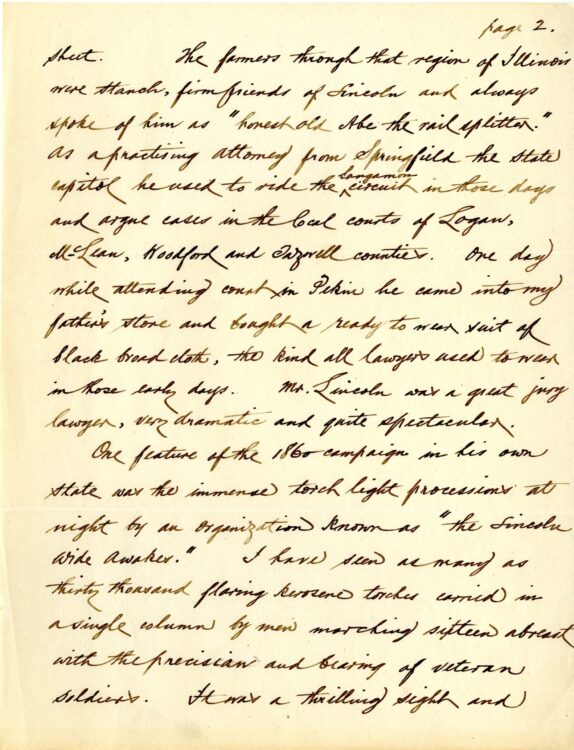 page 2.
sheet. The farmers through that region of Illinois
were stanch, firm friends of Lincoln and always
spoke of him as "honest old Abe the rail splitter."
As a practising attorney from Springfield the state
capitol he used to ride the Sangamon circuit in those days
and argue cases in the local courts of Logan,
McLean, Woodford and Tazwell counties. One day
while attending court in Pekin he came into my
father's store and bought a ready to wear suit of
black broad cloth, the kind all lawyers used to wear
in those early days. Mr. Lincoln was a great jury
lawyer, very dramatic and quite spectacular.
One feature of the 1860 campaign in his own
state was the immense torch light processions at
night by an organization known as "the Lincoln
Wide Awakes." I have seen as many as
thirty thousand flaring kerosene torches carried in
a single column by men marching sixteen abreast
with the precision and bearing of veteran
soldiers. It was a thrilling sight and